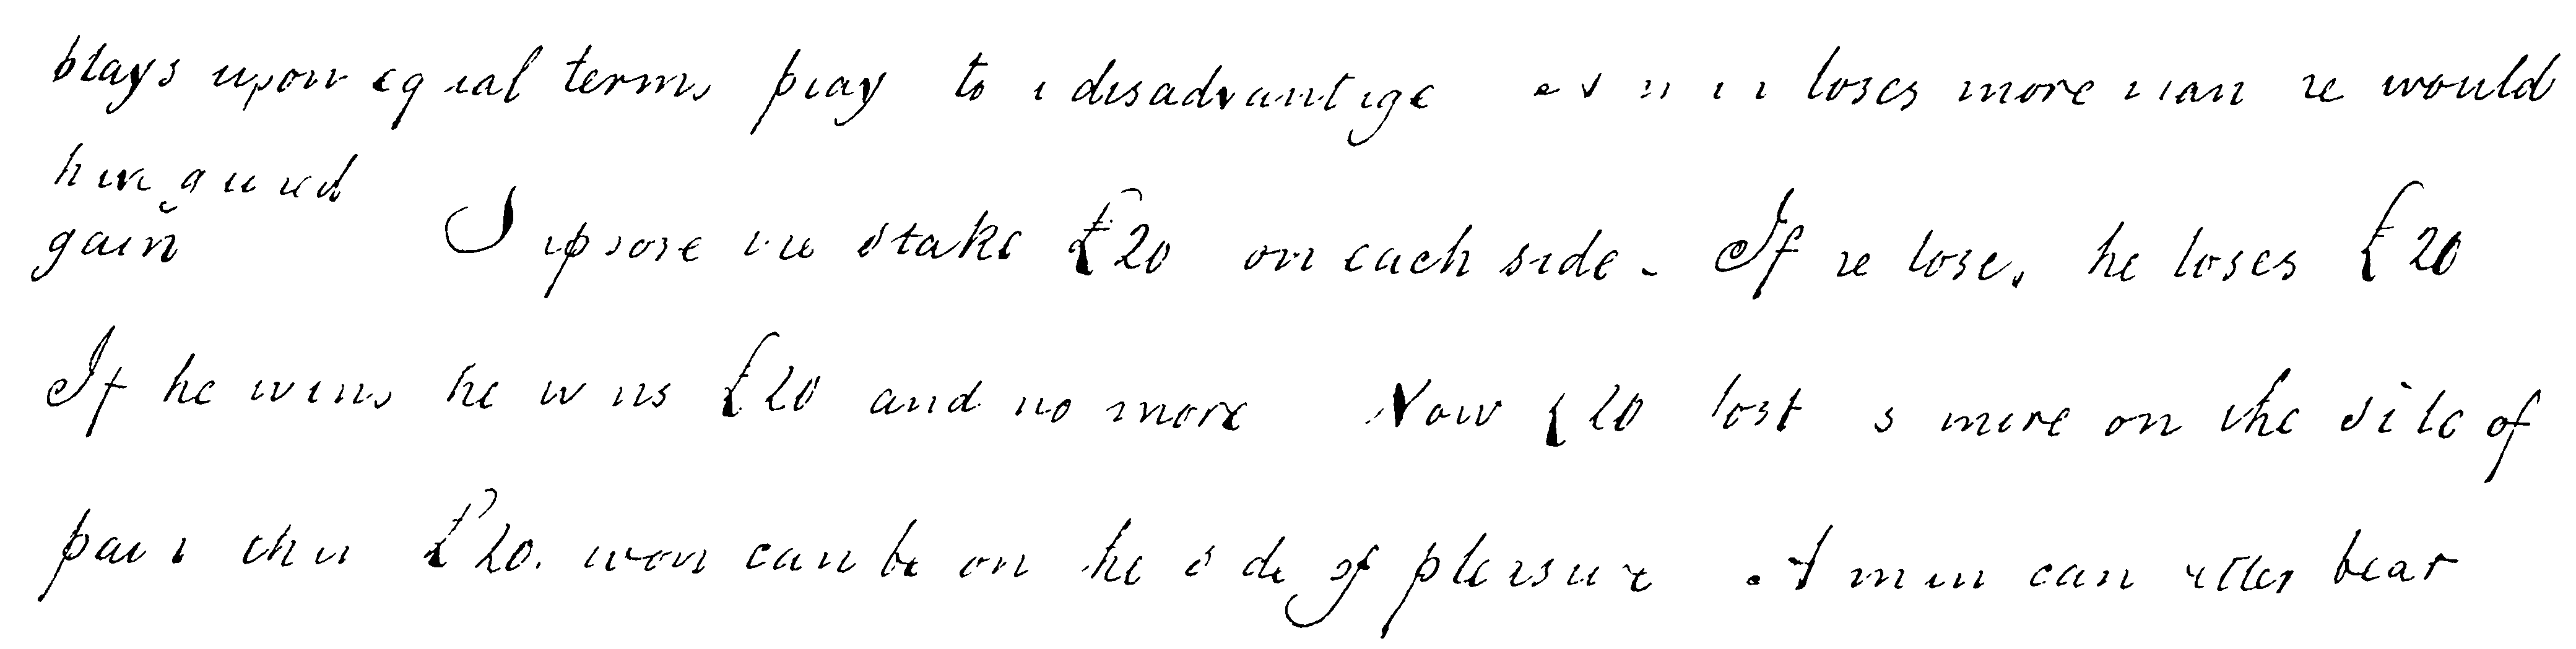 plays upon equal terms play to a disadvantage a man loses more than he would
have gained
gain Suppose we stake £20 on each side - If he lose, he loses £20
If he wins he wins £20 and no more Now £20 lost is more on the side of
pain than £20. won can be on the side of pleasure A man can better bear